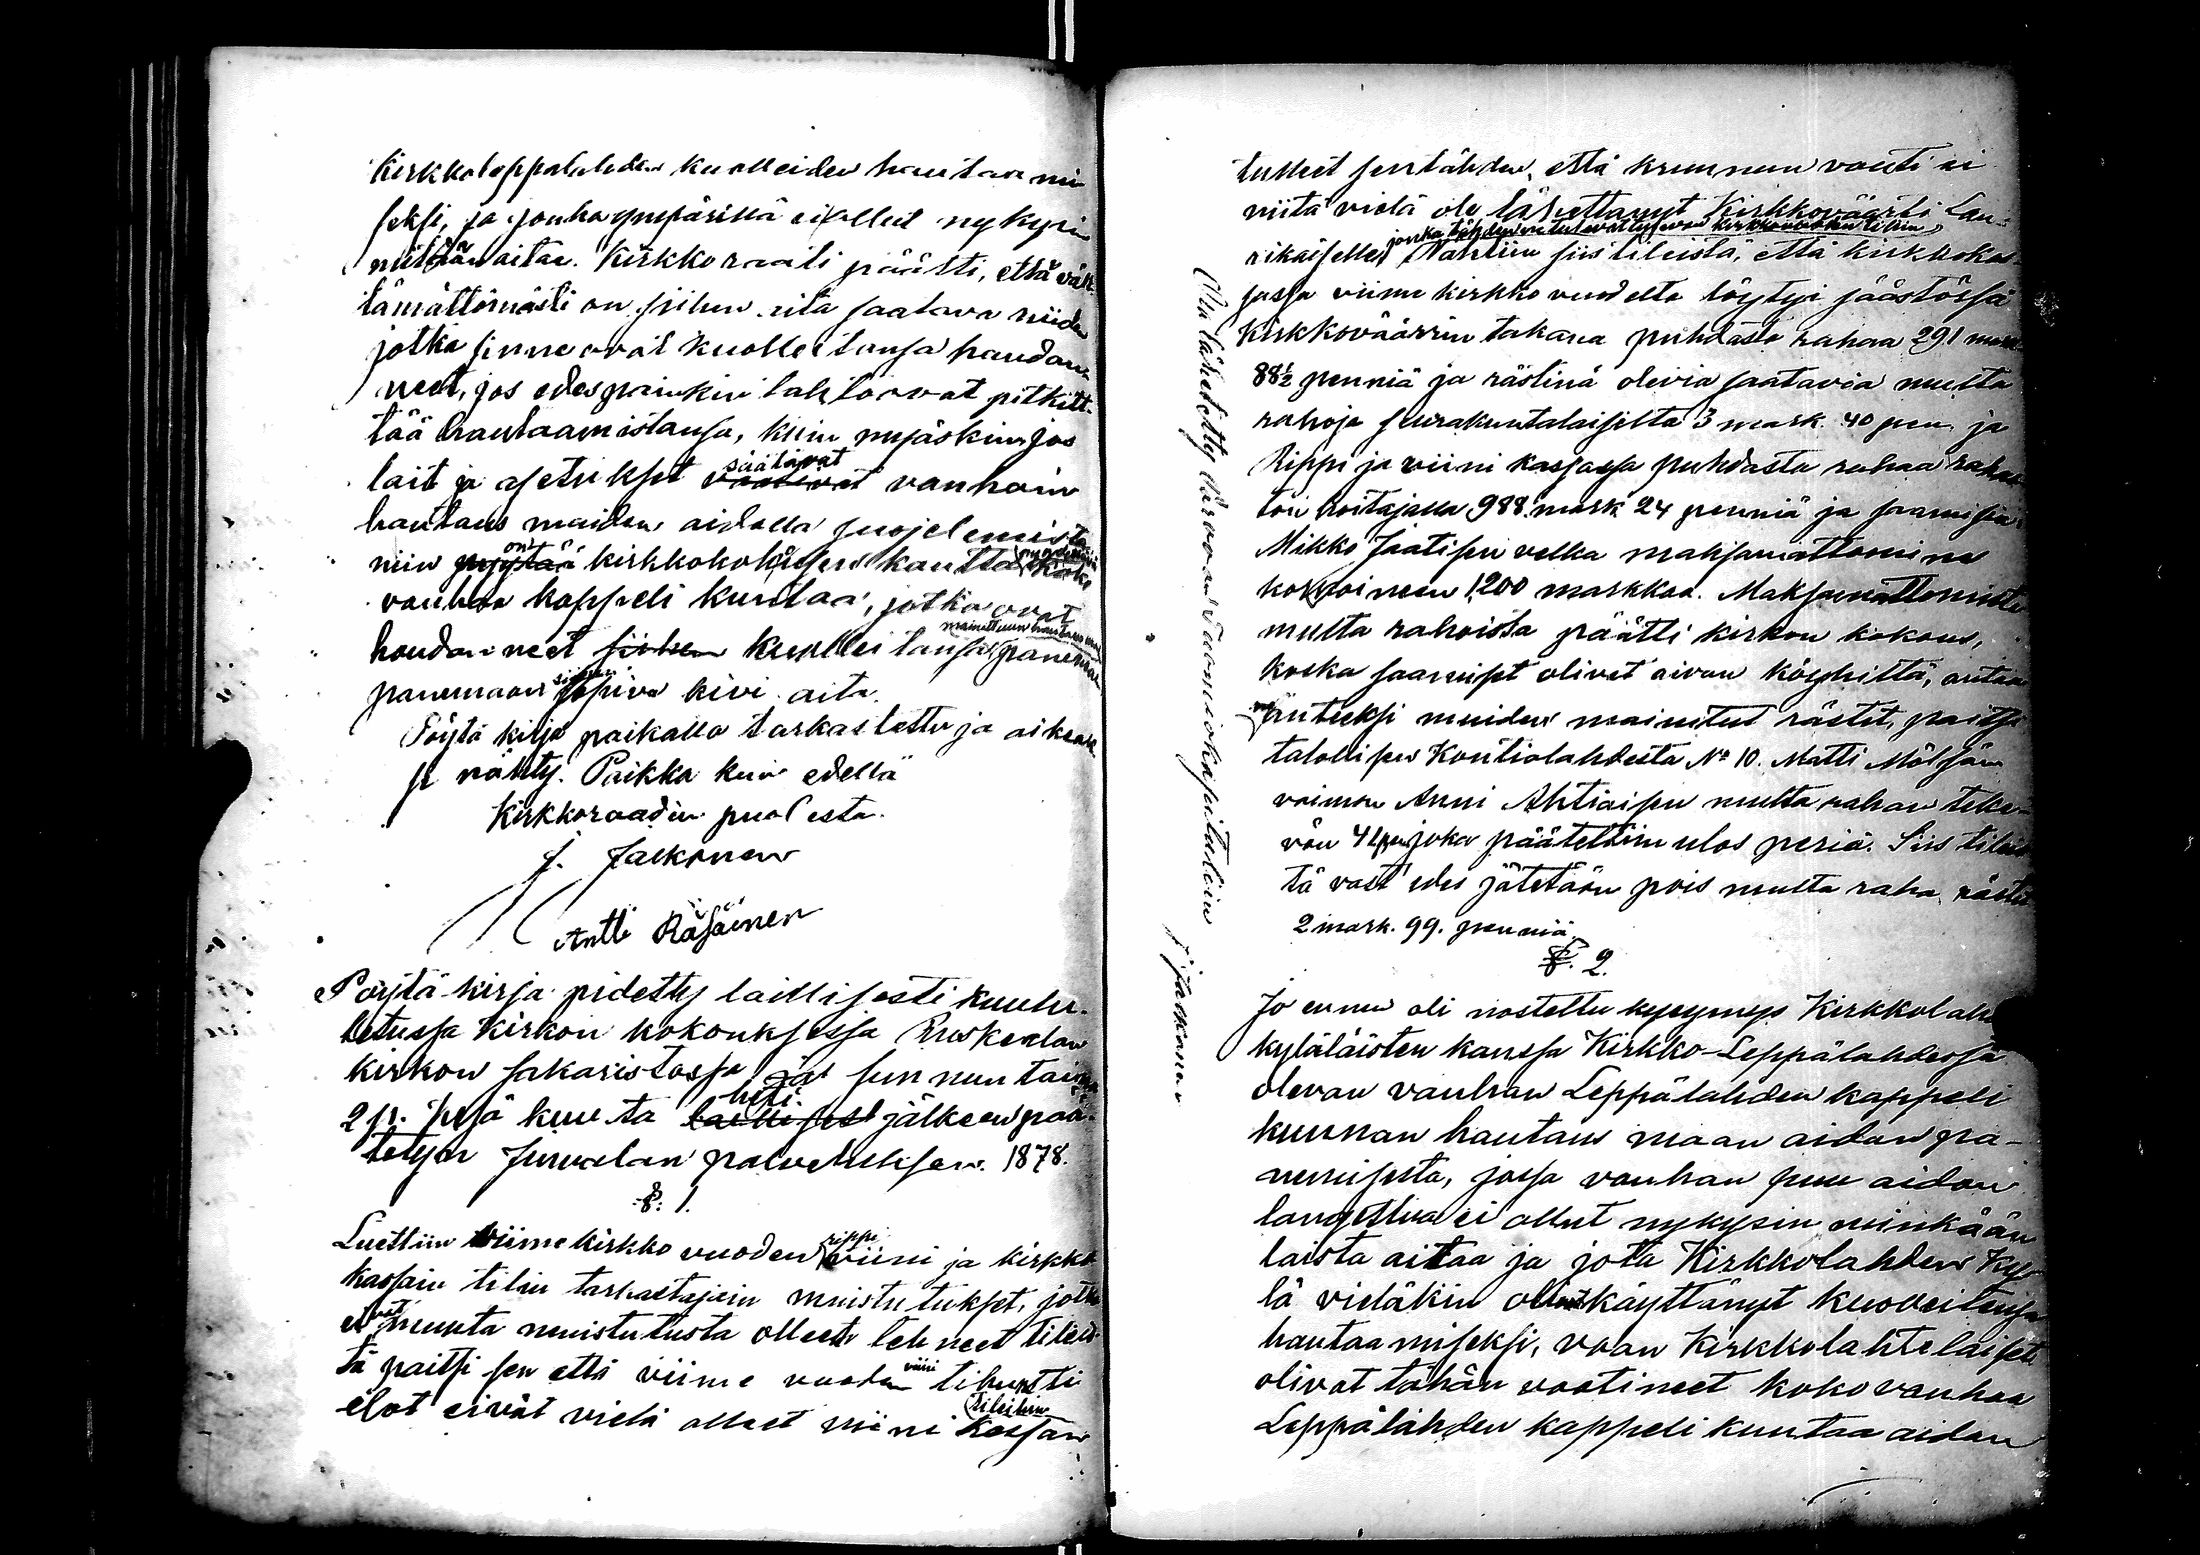 Kirkkoleppälahden kuolleiden hautaami
seksi, ja jonka ympärillä ei ollut nykysin
mitään aitaa. Kirkkoraati päätti, että vält-
tämättömästi on siihen aita saatava niiden
jotka sinne ovat kuolleitansa haudan-
neet, jos edespäinkin tahtoovat pitkitt-
tää hautaamistansa, kuin myöskin jos
lait ja asetukset säätävät vanhain
hautaus maiden aidalla suojelemista
niin on kirkkokokouksen kautta
vanhaa kappeli kuntaa, jotka ovat
haudanneet kuolleitansa
panemaan siihen sopiva kivi aita.
Pöytä kirja paikalla tarkastettu ja oikeak
si nähty. Paikka kuin edellä
Kirkkoraadin puolesta.
J. Jaakonen
Antti Räsäinen
Pöytä-kirja pidetty laillisesti kuulu-
tetussa Kirkon kokouksessa Ruskealan
kirkon sakaristossa sunnuntaina
2 p. kesä kuuta heti jälkeen pää-
tetyn Jumalan palveluksen. 1878.
§. 1.
Luettiin viime kirkko vuoden rippi viini ja kirkko
kassain tilin tarkastajain muistutukset, jotka
eivät muuta muistutusta olleet tehneet tileis-
tä paitsi sen että viime vuoden viini tihunti
elot eivät vielä olleet viini kassan tileihin
tulleet sentähden, että kruunun vouti ei
niitä vielä ole lähettänyt Kirkkoväärti Lau-
jonka tähden ne tulevat tulevan kirkkovuoden tiliin
rikaiselle. Nähtiin siis tileistä, että kirkkokas
sassa viime kirkko vuodelta löytyi säästössä
Kirkkoväärrin takana puhdasta rahaa 291 mark
88½ penniä ja rästinä olevia saatavia multa
rahoja seurakuntalaisilta 3 mark. 40 pen. ja
Rippi ja viini kassassa puhdasta rahaa rahas
ton hoitajalla 988 mark 24 penniä ja
Mikko Jaatisen velka maksamattomine
korkoineen 1,200 markkaa. Maksamattomista
multa rahoista päätti kirkon kokous,
koska saamiset olivat aivan köyhiltä, antaa
anteeksi muiden mainitut rästit, paitsi
talollisen Kontiolahdesta No 10. Matti Mölsän
vaimon Anni Ahtiaisen multa rahan teke-
vän 41 pen joka päätettiin ulos periä. Siis tileis
tä vast'edes jätetään pois multa raha rästiä
2 mark. 99. penniä.
§. 2.
Jo ennen oli nostettu kysymys Kirkkolahden
kyläläisten kanssa Kirkko-Leppälahdessa
olevan vanhan Leppälahden kappeli
kunnan hautaus maan aidan pa-
nemisesta, jossa vanhan puu aidan
langettua ei ollut nykysin minkään
laista aitaa ja jota Kirkkolahden ky-
lä vieläkin oli käyttänyt kuolleitensa
hautaamiseksi, vaan Kirkkolahtelaiset
olivat tähän vaatineet koko vanhaa
Leppälahden kappeli kuntaa aidan
Ulos lähetetty Tuomiokapituliin
J. Jaakonen